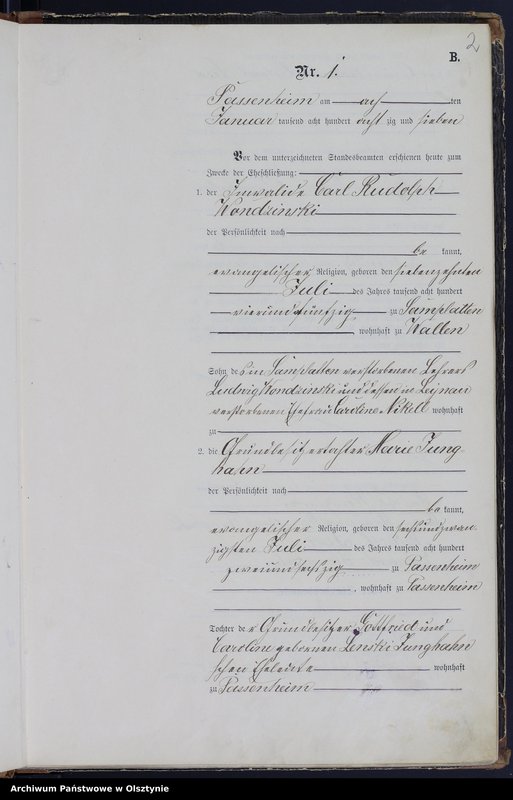 2
B.
Nr. 1.
Passenheim am acht ten
Januar tausend acht hundert acht zig und sieben
Vor dem unterzeichneten Standesbeamten erschienen heute zum
Zwecke der Eheschließung:
1. der Invalide Carl Rudolph
Kondzinski
der Persönlichkeit nach
be kannt,
evangelischer Religion, geboren den siebenzehnten
Juli des Jahres tausend acht hundert
vierundfünfzig zu Samplatten
, wohnhaft zu Wallen
Sohn des in Samplatten verstorbenen Lehrers
Ludwig Kondzinski und dessen in Leynau
verstorbenen Ehefrau Caroline Nikell wohnhaft
zu
2. die Grundbesitzertochter Marie Jung-
hahn
der Persönlichkeit nach
be kannt,
evangelischer Religion, geboren den sechsundzwan-
zigsten Juli des Jahres tausend acht hundert
zweiundsechszig zu Passenheim
, wohnhaft zu Passenheim
Tochter der Grundbesitzer Gottfried und
Caroline geborenen Lenski Junghahn
schen Eheleute wohnhaft
zu Passenheim
Archiwum Państwowe w Olsztynie